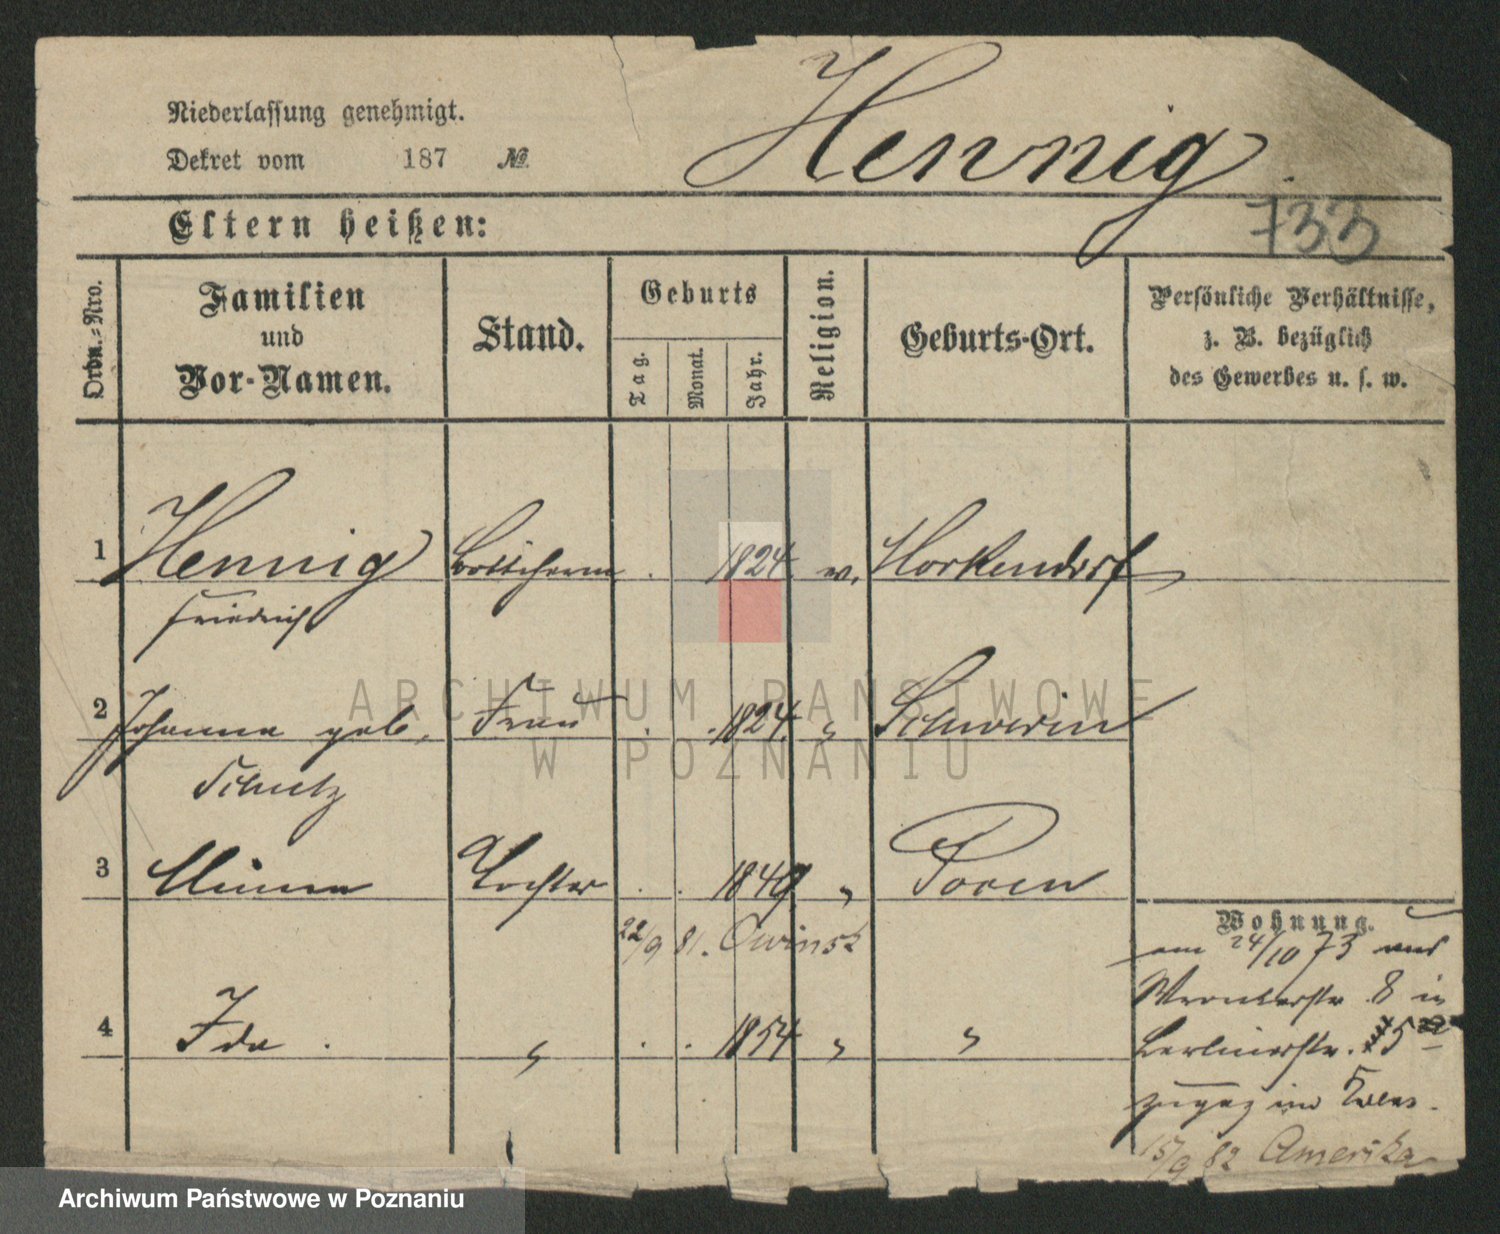 Niederlassung genehmigt.
Dekret vom 187 №
Hennig
733
Eltern heißen:
Ordn.-Nro.
Familien
und
Vor-Namen.
Stand.
Geburts
Tag.
Monat.
Jahr.
Religion.
Geburts-Ort.
Persönliche Verhältnisse,
z. B. bezüglich
des Gewerbes u. s. w.
1 Hennig 1824
Friedrich
2 Johanna geb. Frau 1824 " Schwerin
Schulz
3 Minna Tochter 1849 " Posen
22/9 81. Owinsk
4 Ida . " 1854 " "
Wohnung.
am 24/10 73 aus
Wronkerstr. 8 in
Berlinerstr. 15
15/9 82 Amerika
ARCHIWUM PAŃSTWOWE
W POZNANIU
Archiwum Państwowe w Poznaniu